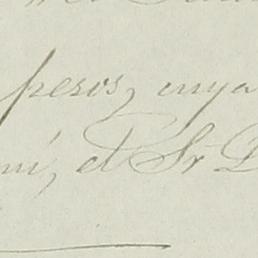 pesos, cuya
mí, el Sr D